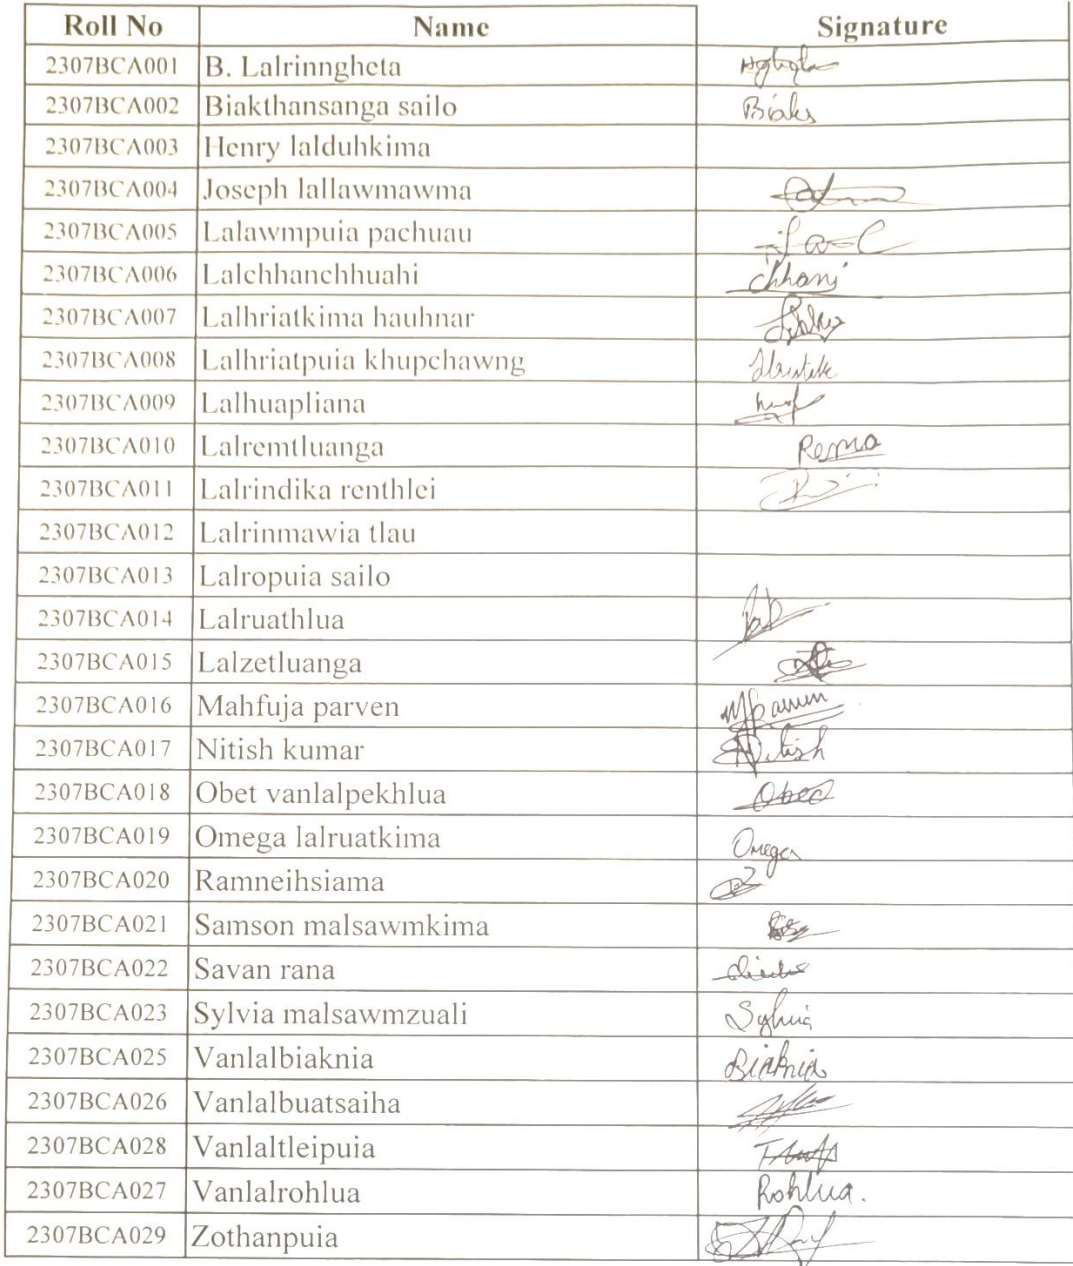 Roll No Name Signature
2307BCA001 B. Lalrinngheta
2307BCA002 Biakthansanga sailo Biaks
2307BCA003 Henry lalduhkima
2307BCA004 Joseph lallawmawma
2307BCA005 Lalawmpuia pachuau
2307BCA006 Lalchhanchhuahi chhani
2307BCA007 Lalhriatkima hauhnar
2307BCA008 Lalhriatpuia khupchawng
2307BCA009 Lalhuapliana
2307BCA010 Lalremtluanga Rema
2307BCA011 Lalrindika renthlei
2307BCA012 Lalrinmawia tlau
2307BCA013 Lalropuia sailo
2307BCA014 Lalruathlua
2307BCA015 Lalzetluanga
2307BCA016 Mahfuja parven
2307BCA017 Nitish kumar Nitish
2307BCA018 Obet vanlalpekhlua Obed
2307BCA019 Omega lalruatkima Omega
2307BCA020 Ramneihsiama
2307BCA021 Samson malsawmkima
2307BCA022 Savan rana
2307BCA023 Sylvia malsawmzuali Sylvia
2307BCA025 Vanlalbiaknia Biaknia
2307BCA026 Vanlalbuatsaiha
2307BCA028 Vanlaltleipuia
2307BCA027 Vanlalrohlua Rohlua.
2307BCA029 Zothanpuia